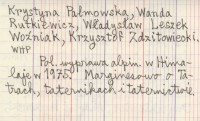 Krystyna Palmowska, Wanda
Rutkiewicz, Władysław Leszek
Woźniak, Krzysztof Zdzitowiecki.
WHP
Pol. wyprawa alpin. w Hima-
laje w 1975. Marginesowo o Ta-
trach, taternikach i taternictwie.